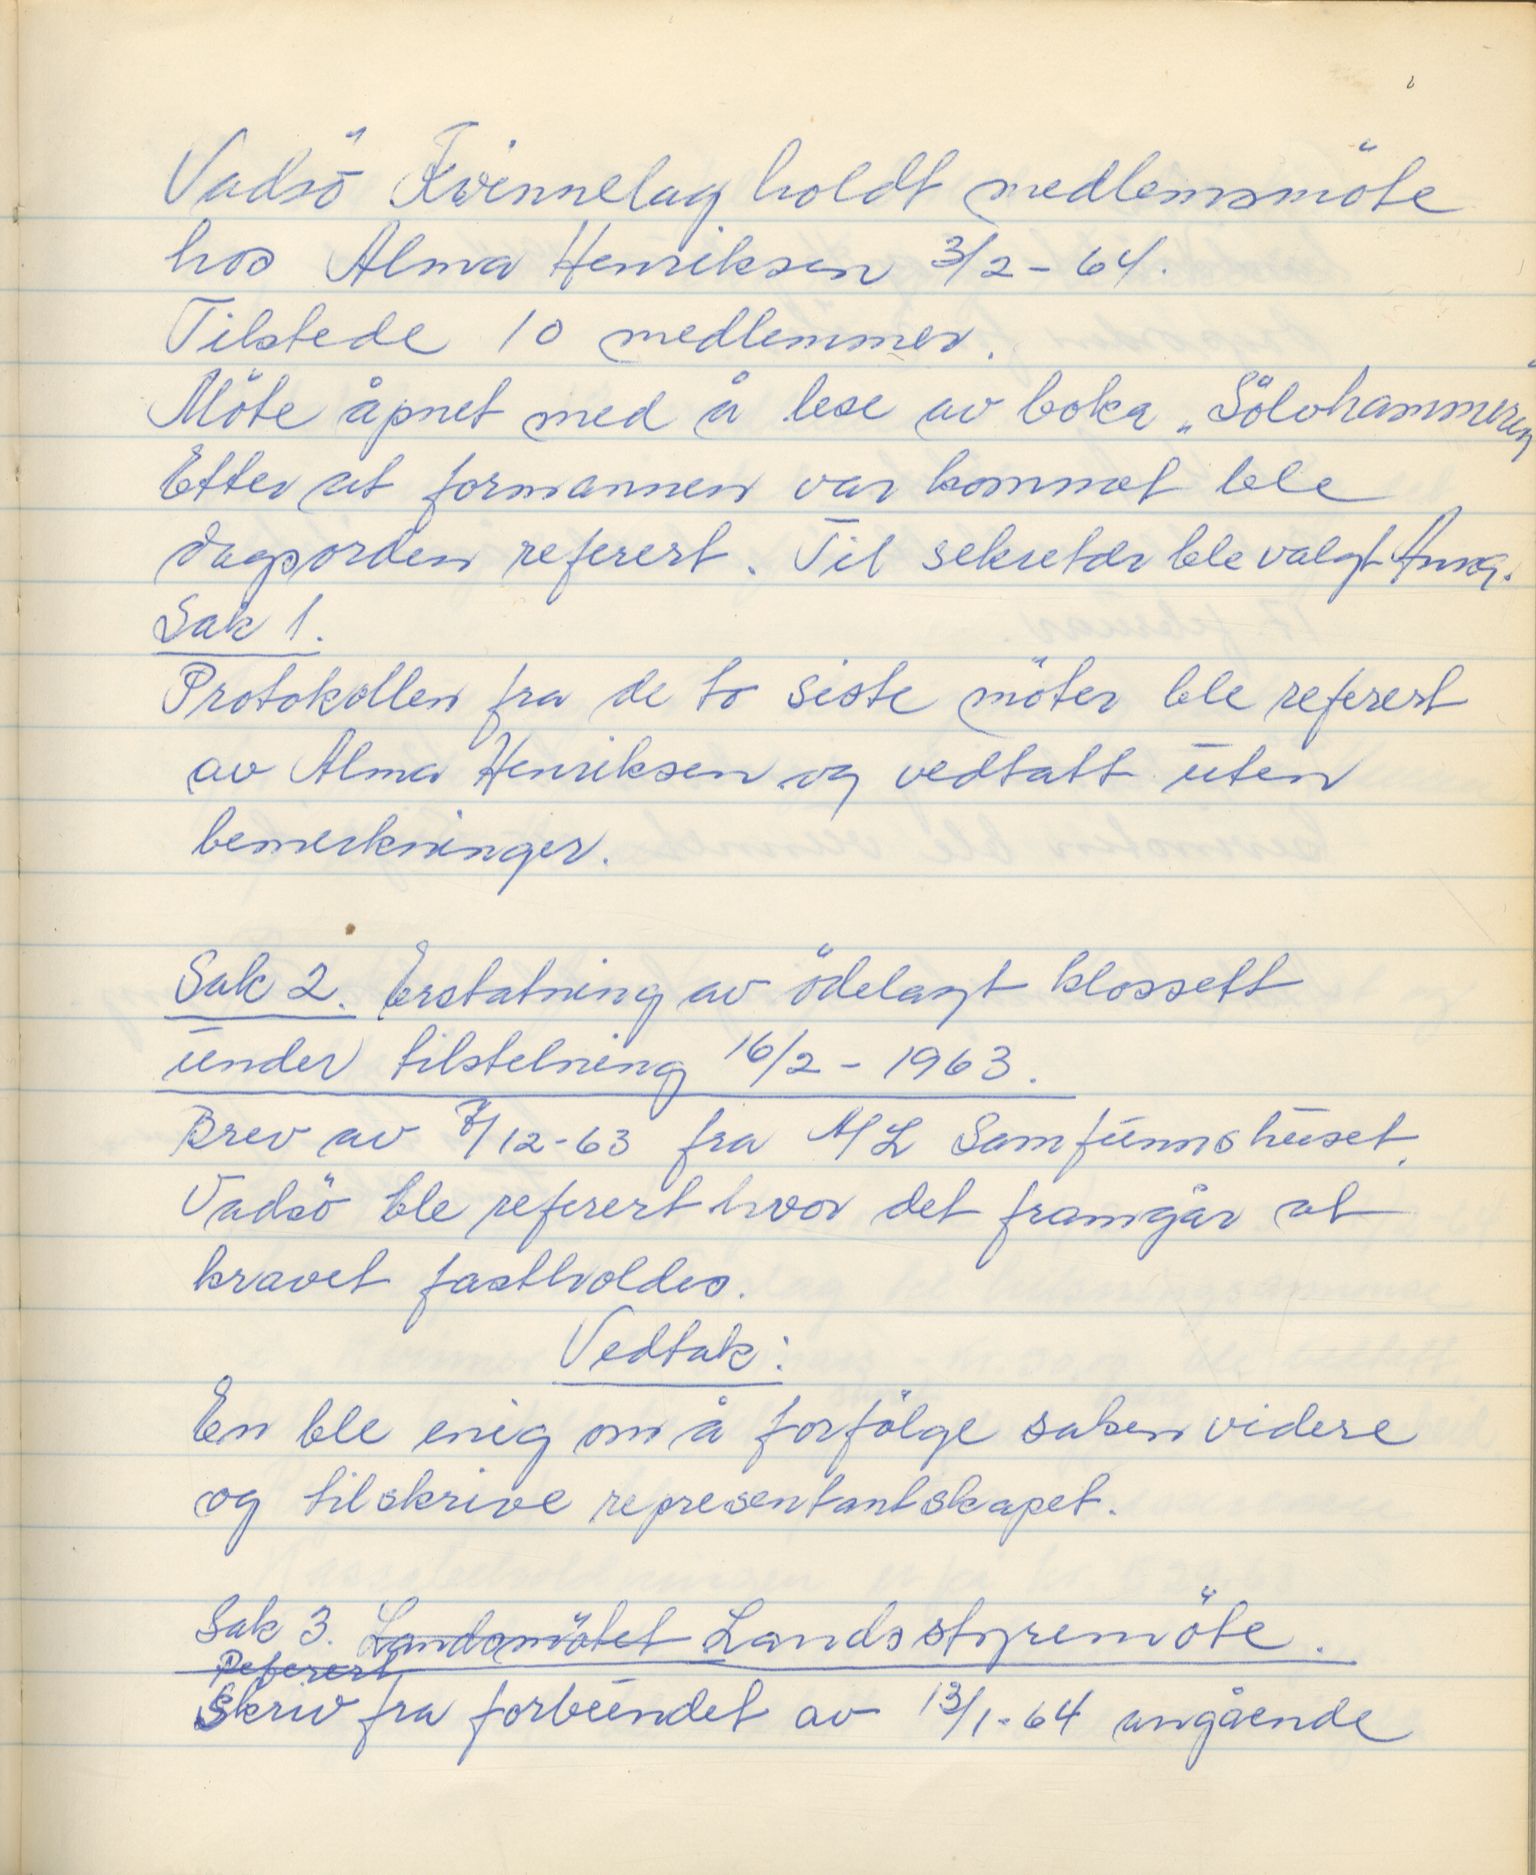 Vadsö Kvinnelag holdt medlemsmöte
hos Alma Henriksen 3/2 - 64.
Tilstede 10 medlemmer.
Möte åpnet med å lese av boka „Sölvhammeren"
Etter at formannen var kommet ble
dagsorden referert. Til sekretær ble valgt Anna.
Sak 1.
Protokollen fra de to siste möter ble referert
av Alma Henriksen og vedtatt uten
bemerkninger.
Sak 2. Erstatning av ödelagt klossett
under tilstelning 16/2 - 1963.
Brev av /12-63 fra A/L Samfunnshuset,
Vadsö ble referert hvor det framgår at
kravet fastholdes.
Vedtak:
En ble enig om å forfölge saken videre
og tilskrive representantskapet.
Sak 3. Landsmötet Landsstyremöte.
Referert
Skriv fra forbundet av 13/1-64 angående